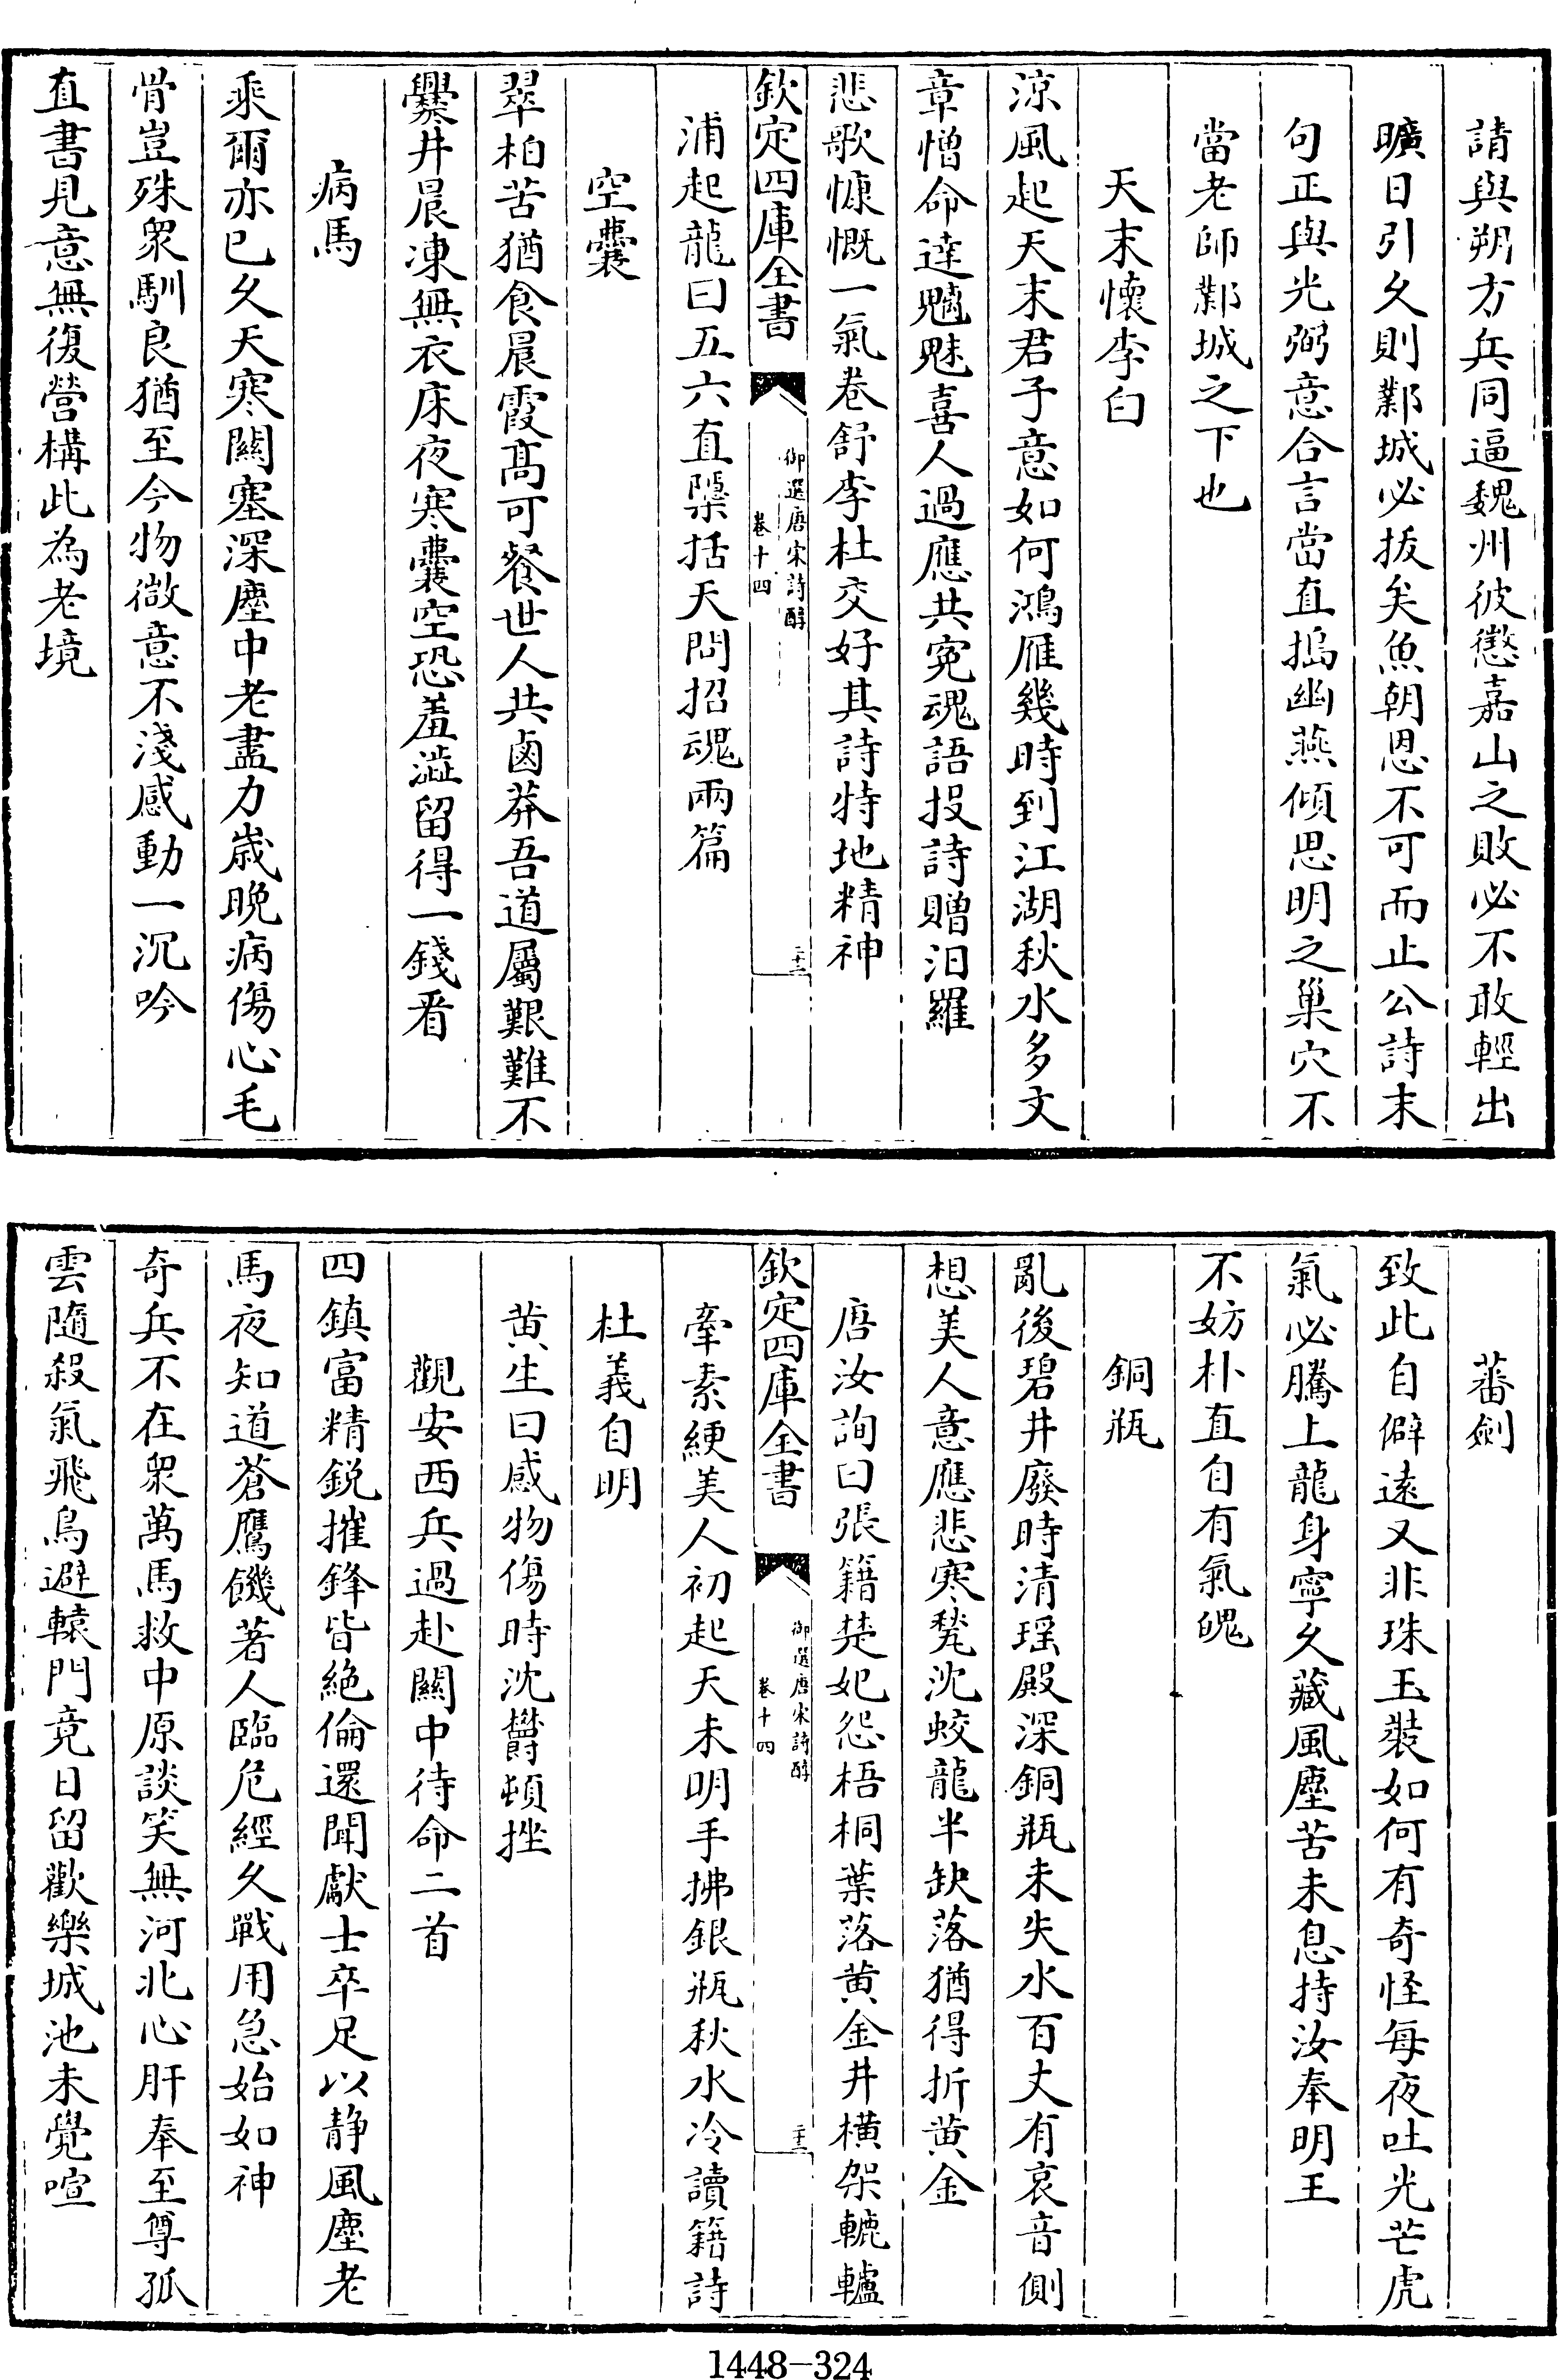 請與朔方兵同逼魏州彼懲嘉山之敗必不敢輕出
曠日引久則鄴城必拔矣魚朝恩不可而止公詩末
句正與光弼意合言當直搗幽燕傾思明之巢穴不
當老師鄴城之下也
天末懷李白
涼風起天末君子意如何鴻雁幾時到江湖秋水多文
章憎命達魑魅喜人過應共寃魂語投詩贈汨羅
悲歌慷慨一氣卷舒李杜交好其詩特地精神
欽定四庫全書
御選唐宋詩醇
卷十四
二十二
浦起龍曰五六直櫽括天問招魂兩篇
空囊
翠柏苦猶食晨霞髙可餐世人共鹵莽吾道屬艱難不
爨井晨凍無衣床夜寒囊空恐羞澁留得一錢看
病馬
乘爾亦已久天寒關塞深塵中老盡力歲晚病傷心毛
骨豈殊衆馴良猶至今物微意不淺感動一沉吟
直書見意無復營構此為老境
蕃劍
致此自僻遠又非珠玉裝如何有奇怪每夜吐光芒虎
氣必騰上龍身寧久藏風塵苦未息持汝奉明王
不妨朴直自有氣魄
銅瓶
亂後碧井廢時清瑶殿深銅瓶未失水百丈有哀音側
想美人意應悲寒甃沈蛟龍半缺落猶得折黄金
唐汝詢曰張籍楚妃怨梧桐葉落黄金井横架轆轤
欽定四庫全書
御選唐宋詩醇
卷十四
二十三
牽素綆美人初起天未明手拂銀瓶秋水冷讀籍詩
杜義自明
黄生曰感物傷時沈欝頓挫
觀安西兵過赴關中待命二首
四鎮富精鋭摧鋒皆絶倫還聞獻士卒足以静風塵老
馬夜知道蒼鷹饑著人臨危經久戰用急始如神
奇兵不在衆萬馬救中原談笑無河北心肝奉至尊孤
雲隨殺氣飛鳥避轅門竟日留歡樂城池未覺喧
1448-324